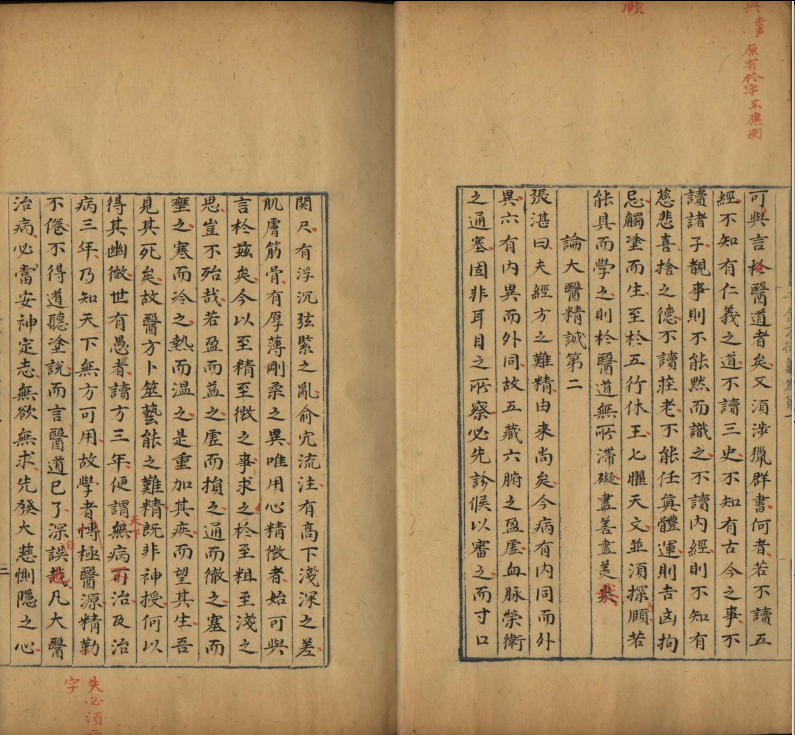 可與言於醫道者矣又須涉獵群書何者若不讀五
經不知有仁義之道不讀三史不知有古今之事不
讀諸子覩事則不能默而識之不讀內經則不知有
慈悲喜捨之德不讀莊老不能任真體運則吉凶拘
忌觸塗而生至於五行休王七耀天文並須探賾若
能具而學之則於醫道無所滯礙盡善盡美矣
論大醫精誠第二
張湛曰夫經方之難精由来尚矣今病有內同而外
異六有內異而外同故五藏六腑之盈虛血脉榮衛
之通塞固非耳目之所察必先診候以審之而寸口
関尺有浮沉弦緊之亂俞穴流注有高下淺深之差
肌膚筋骨有厚薄剛柔之異唯用心精微者始可與
言於茲矣今以至精至微之事求之於至粗至淺之
思豈不殆哉若盈而益之虛而損之通而徹之塞而
壅之寒而冷之熱而温之是重加其疾而望其生吾
見其死矣故醫方卜筮藝能之難精既非神授何以
得其幽微世有愚者讀方三年便謂無病可治及治
天下
病三年乃知天下無方可用故學者博極醫源精勤
不倦不得道聽塗說而言醫道已了深誤哉凡大醫
治病必當安神定志無欲無求先發大慈惻隱之心
二
原有於字不應刪
失必須二
字